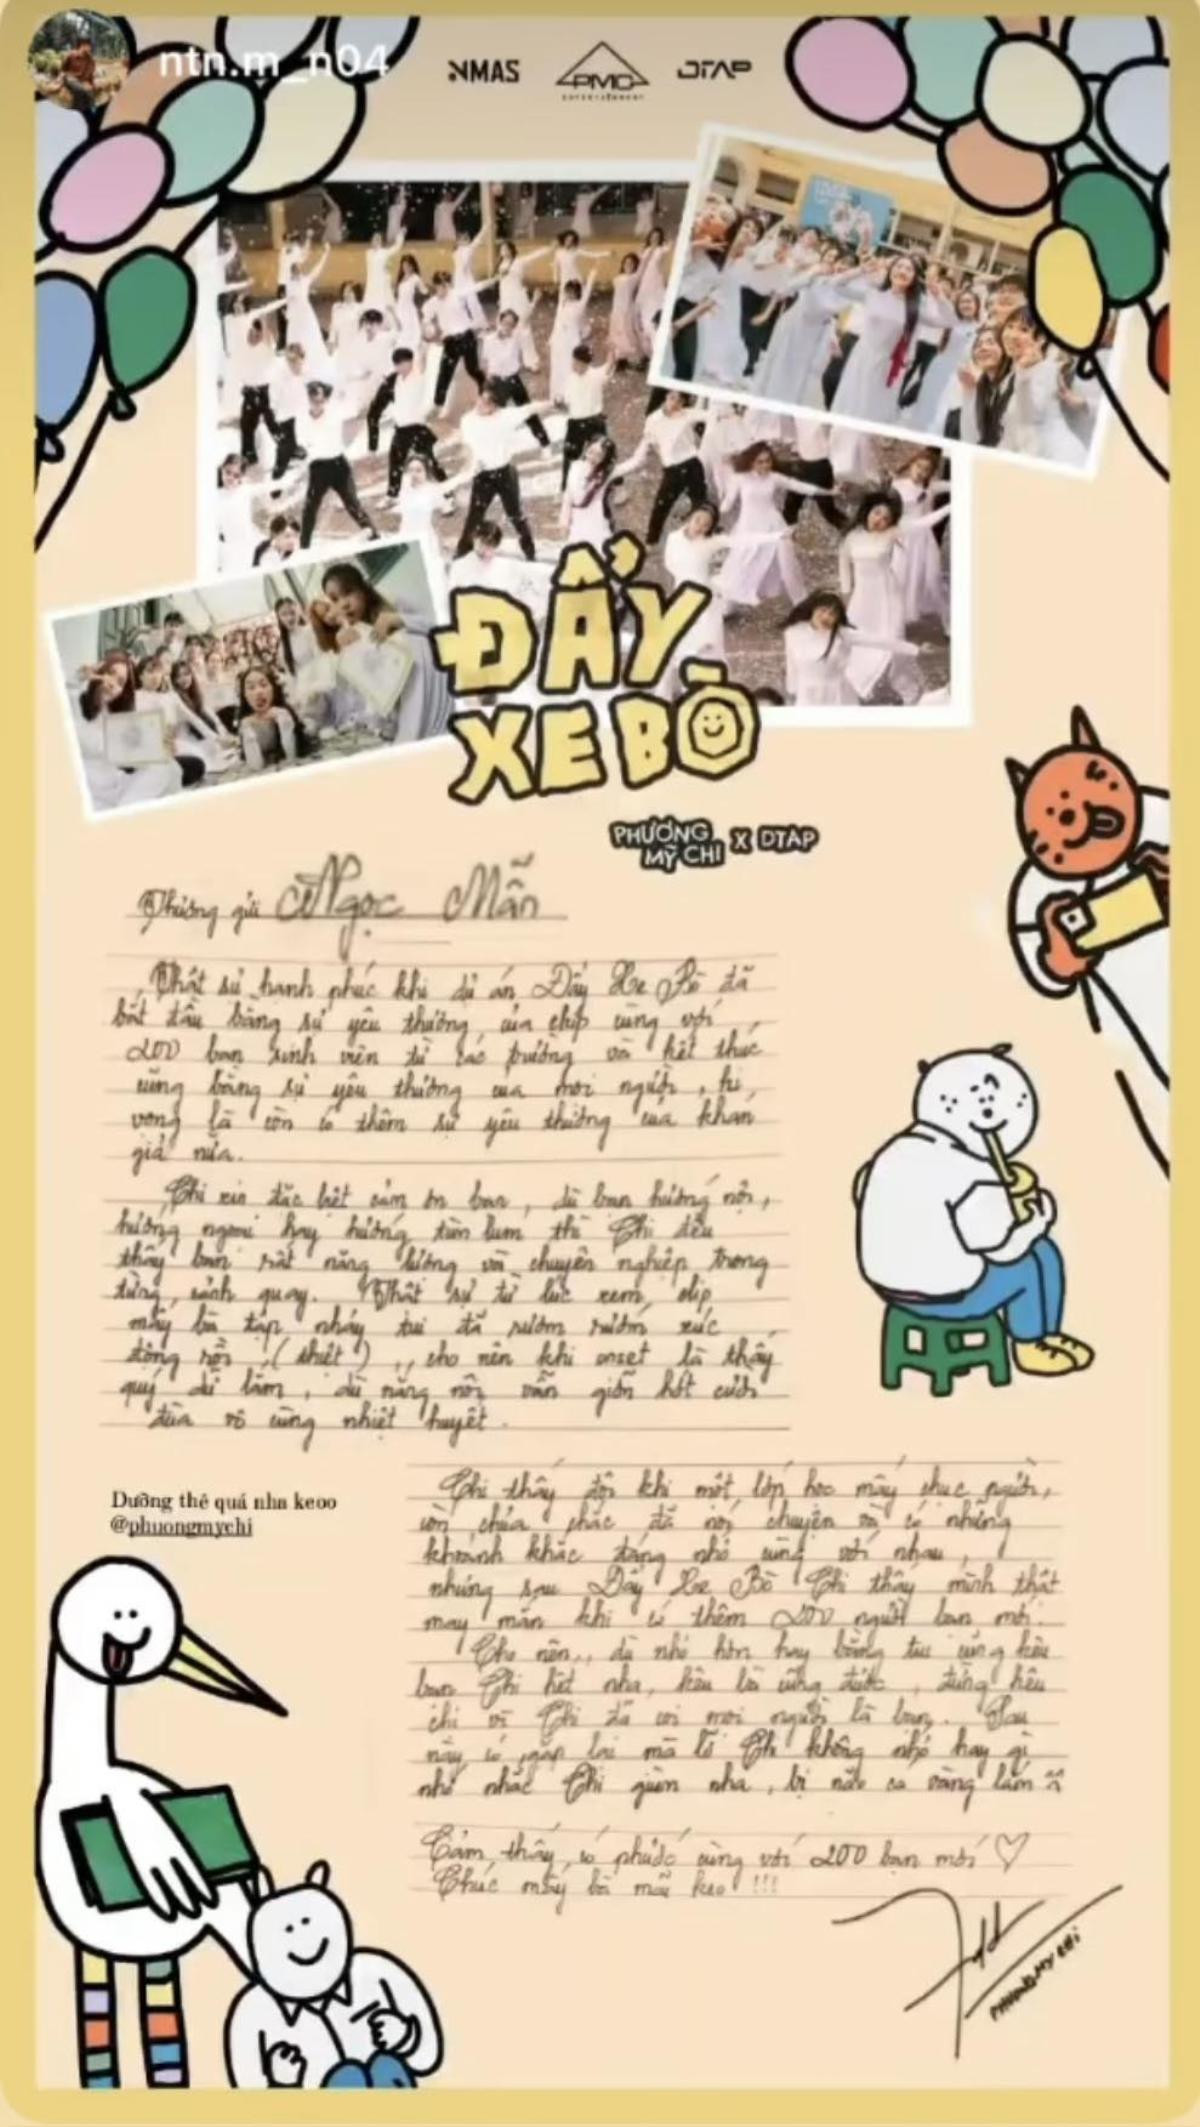 ntn.m_n04
NMAS
PMC
ENTERTAINMENT
DTAP
ĐẨY
XE BÒ
PHƯƠNG MỸ CHI X DTAP
Thương gửi Ngọc Mẫn
Thật sự hạnh phúc khi dự án Đẩy Xe Bò đã
bắt đầu bằng sự yêu thương của ekip cùng với
200 bạn sinh viên từ các trường và kết thúc
cũng bằng sự yêu thương của mọi người, hi
vọng là còn có thêm sự yêu thương của khán
giả nữa.
Chi xin đặc biệt cảm ơn bạn, dù bạn hướng nội,
hướng ngoại hay hướng tùm lum thì Chi đều
thấy bạn rất năng lượng và chuyên nghiệp trong
từng cảnh quay. Thật sự từ lúc xem clip
mấy bà tập nhảy tui đã rươm rướm xúc
động rồi (thiệt), cho nên khi onset là thấy
quý dữ lắm, dù nắng nôi vẫn giỡn hớt cười
đùa vô cùng nhiệt huyết.
Dưỡng thê quá nha keoo
@phuongmychi
Chi thấy đôi khi một lớp học mấy chục người,
còn chưa chắc đã nói chuyện và có những
khoảnh khắc đáng nhớ cùng với nhau,
nhưng sau Đẩy Xe Bò Chi thấy mình thật
may mắn khi có thêm 200 người bạn mới.
Cho nên, dù nhỏ hơn hay bằng tui cũng kêu
bạn Chi hết nha, kêu bà cũng được, đừng kêu
chị vì Chi đã coi mọi người là bạn. Sau
này có gặp lại mà lỡ Chi không nhớ hay gì
nhớ nhắc Chi giùm nha, bị não cá vàng lắm ^^
Cảm thấy có phước cùng với 200 bạn mới ♡
Chúc mấy bà mãi keo !!!
PHƯƠNG MỸ CHI